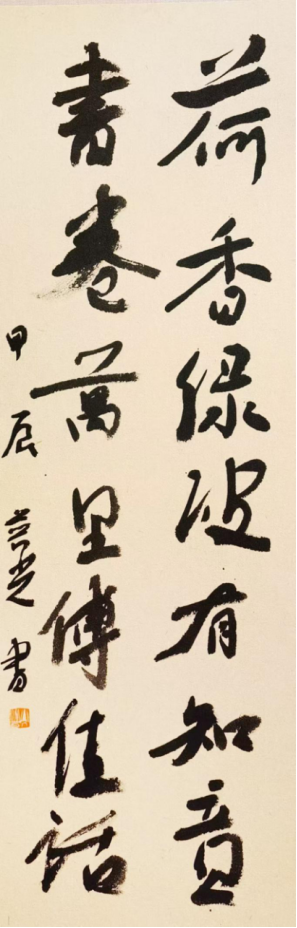 荷香绿波有知音
書卷萬里傳佳话
甲辰 書